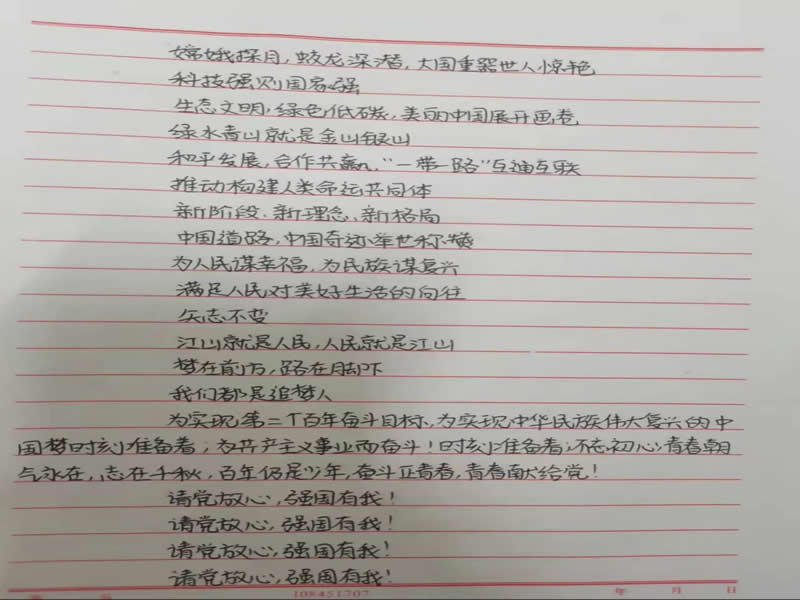 嫦娥探月，蛟龙深潜，大国重器世人惊艳
科技强则国家强
生态文明，绿色低碳，美丽中国展开画卷
绿水青山就是金山银山
和平发展，合作共赢，“一带一路”互通互联
推动构建人类命运共同体
新阶段、新理念、新格局
中国道路，中国奇迹举世称赞
为人民谋幸福，为民族谋复兴
满足人民对美好生活的向往
矢志不变
江山就是人民，人民就是江山
梦在前方，路在脚下
我们都是追梦人
为实现第二个百年奋斗目标，为实现中华民族伟大复兴的中
国梦时刻准备着；为共产主义事业而奋斗！时刻准备着；不忘初心，青春朝
气永在，志在千秋，百年仍是少年，奋斗正青春，青春献给党！
请党放心，强国有我！
请党放心，强国有我！
请党放心，强国有我！
请党放心，强国有我！
108451707 年 月 日